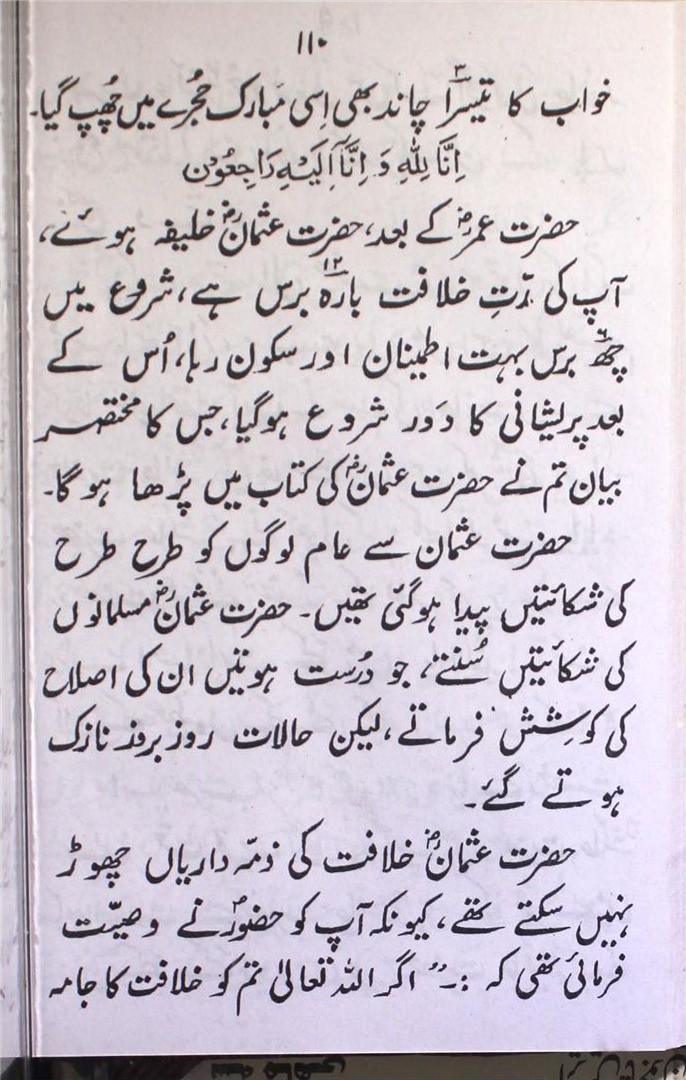 ۱۱۰
خواب کا تیسرا۳ چاند بھی اِسی مَبارک حُجرے میں چُھپ گیا۔
اِنَّا لِلّٰهِ وَ اِنَّآ اِلَیْهِ رَاجِعُوْن
حضرت عمرؓ کے بعد، حضرت عثمانؓ خلیفہ ہوئے،
آپ کی مدّتِ خلافت بارہ۱۲ برس ہے، شروع میں
چھ۶ برس بہت اطمینان اور سکون رہا، اُس کے
بعد پریشانی کا دَور شروع ہوگیا، جس کا مختصر
بیان تم نے حضرت عثمانؓ کی کتاب میں پڑھا ہو گا۔
حضرت عثمان سے عام لوگوں کو طرح طرح
کی شکائتیں پیدا ہوگئی تھیں۔ حضرت عثمانؓ مسلمانوں
کی شکائتیں سُنتے، جو دُرست ہوتیں ان کی اصلاح
کی کوشِش فرماتے، لیکن حالات روز بروز نازک
ہوتے گئے۔
حضرت عثمانؓ خلافت کی ذمّہ داریاں چھوڑ
نہیں سکتے تھے، کیونکہ آپ کو حضورؐ نے وصیّت
فرمائی تھی کہ :۔ " اگر اللہ تعالیٰ تم کو خلافت کا جامہ